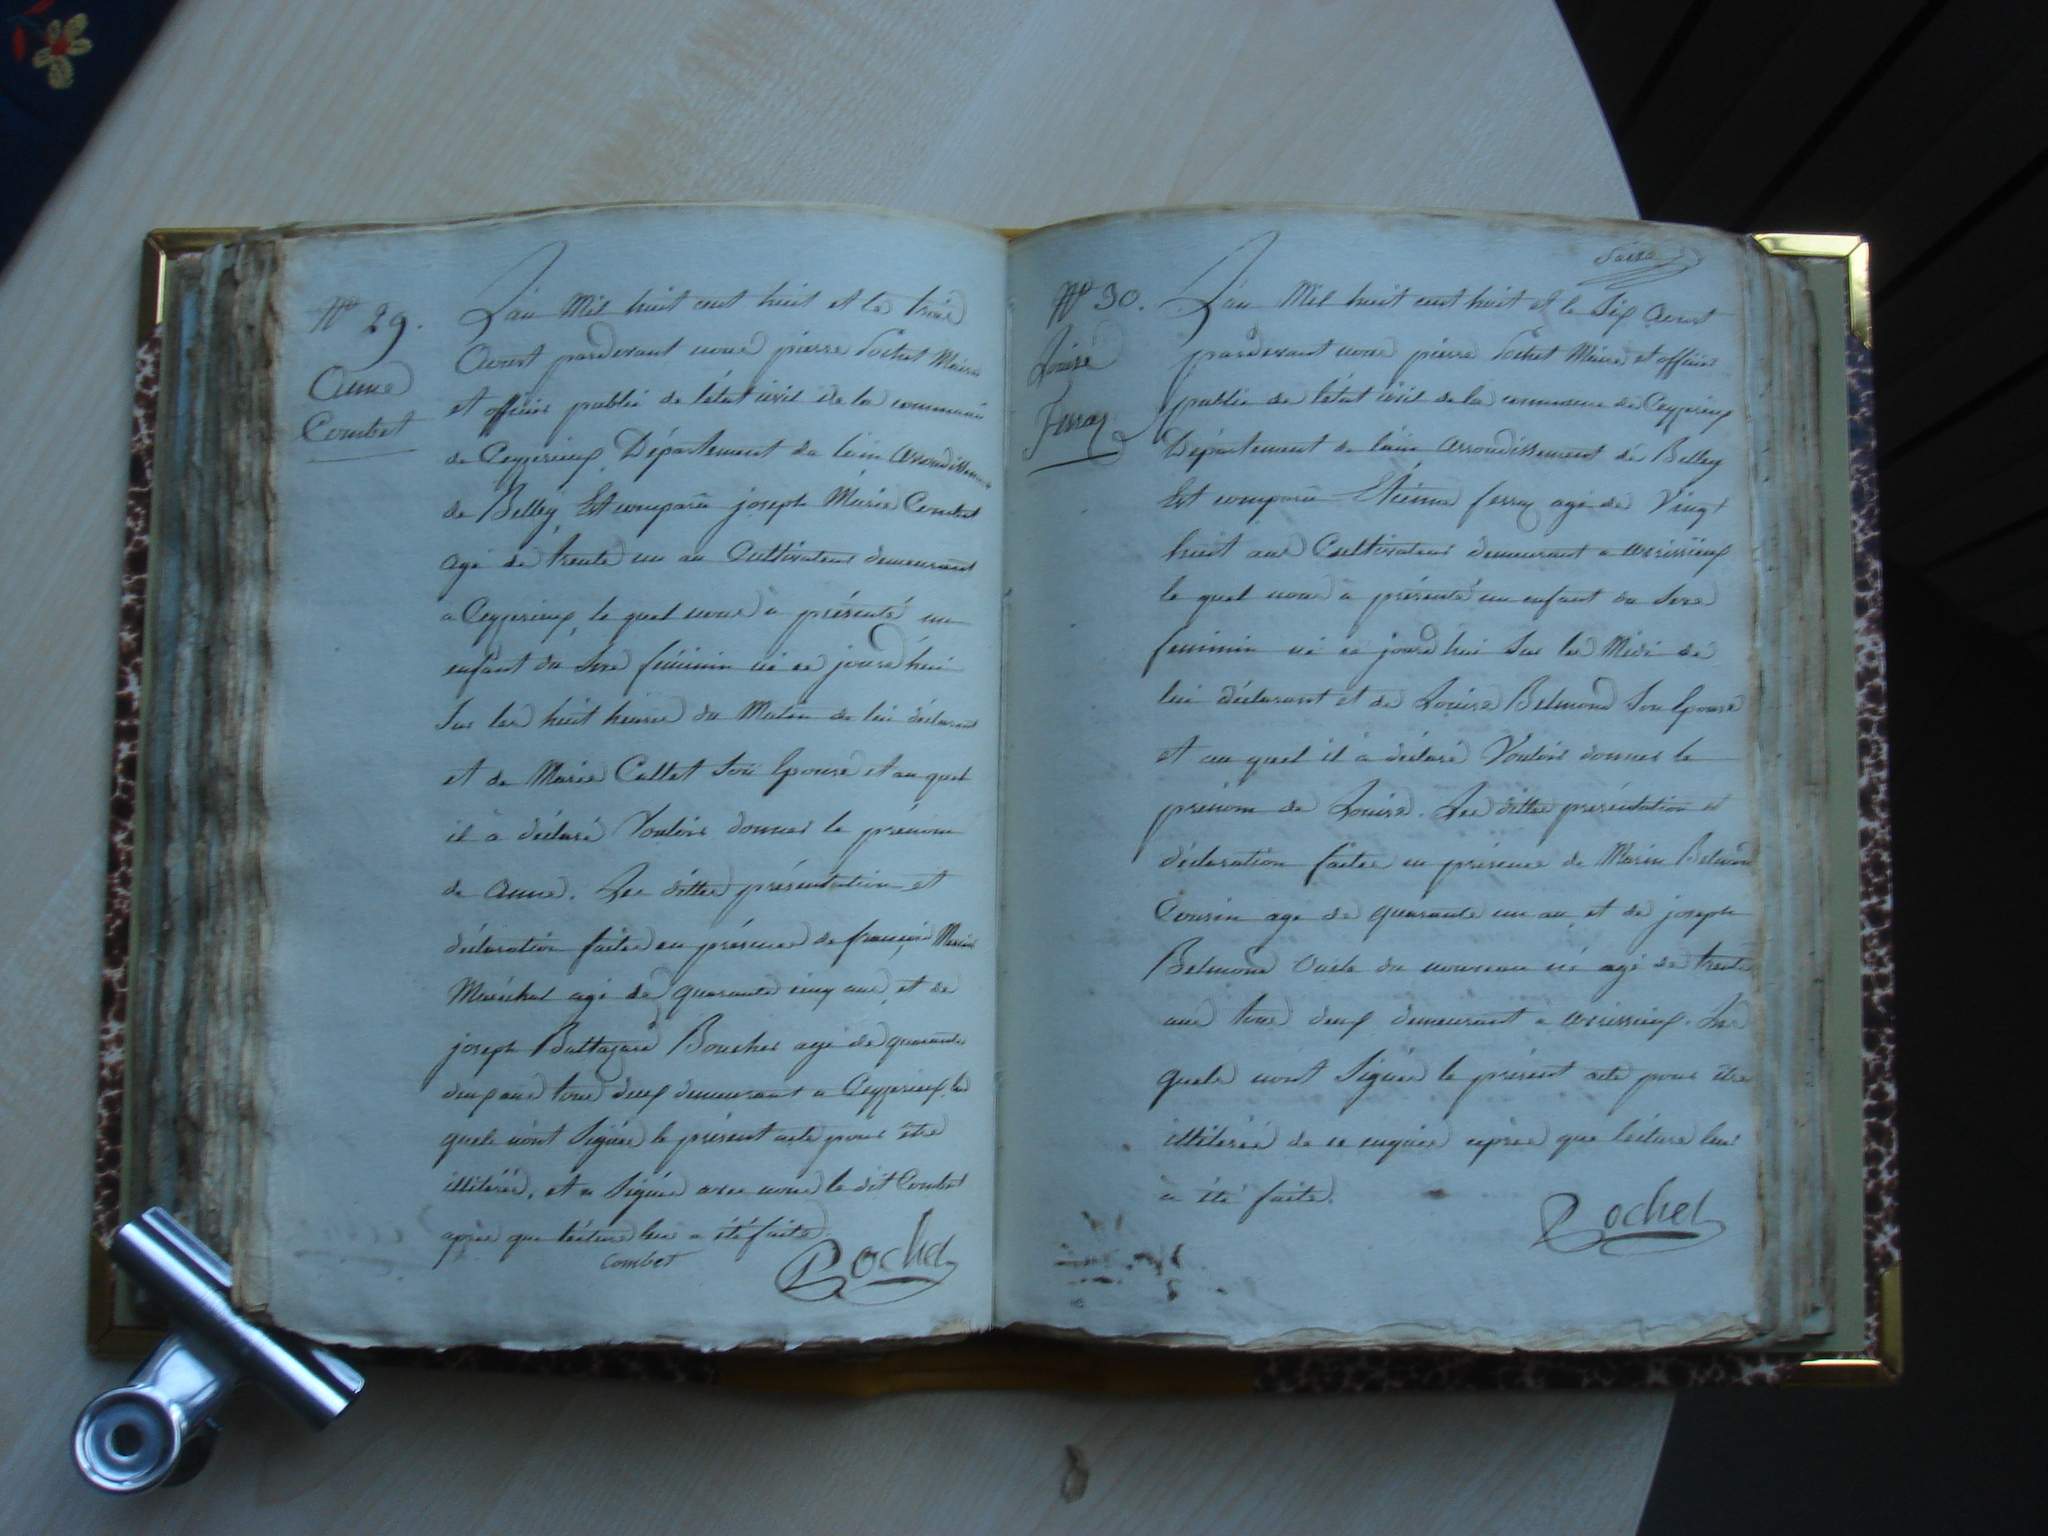 N° 29.
Anne
Combet
L'an Mil huit cent huit et le trois
Aoust pardevant nous pierre Pochet Maire
et officier public de l'état civil de la commune
de Ceyzerieux, Département de l'ain arrondissement
de Belley, Est comparu joseph Marie Combet
agé de trente un an Cultivateur demeurant
a Ceyzerieux, le quel nous à présenté un
enfant du Sexe féminin né ce jourd'hui
Sur les huit heures du Matin de lui déclarant
et de Marie Callet Son Epouse et au quel
il à déclaré Vouloir donner le prénom
de Anne. Les dittes présentation et
déclaration faites en présence de françois Marin
Maréchal agé de quarante cinq ans, et de
joseph Baltazard Boucher agé de quarante
deux ans tous deux demeurant a Ceyzerieux, les
quels n'ont Signés le présent acte pour être
illitérés, et a Signé avec nous le dit Combet
après que lécture leur a été faite.
Combet
Pochet
N° 30.
Louise
Ferraz
L'an Mil huit cent huit et le Six Aoust
pardevant nous pierre Pochet Maire et officier
public de l'état civil de la commune de Ceyzerieux
Département de l'ain arrondissement de Belley
Est comparu Etienne ferraz agé de Vingt
huit ans Cultivateur demeurant a avrissieux
le quel nous à présenté un enfant du Sexe
feminin né ce jourd'hui Sur les Midi de
lui déclarant et de Louise Belmond Son Epouse
et au quel il à déclaré Vouloir donner le
prénom de Louise. Les dittes présentation et
déclaration faites en présence de Marin Belmond
Cousin agé de quarante un an, et de joseph
Belmond Oncle du nouveau né agé de trente
ans tous deux demeurant a avrissieux. Les
quels n'ont Signés le présent acte pour être
illitérés de ce enquis après que lécture leur
à été faite.
Pochet